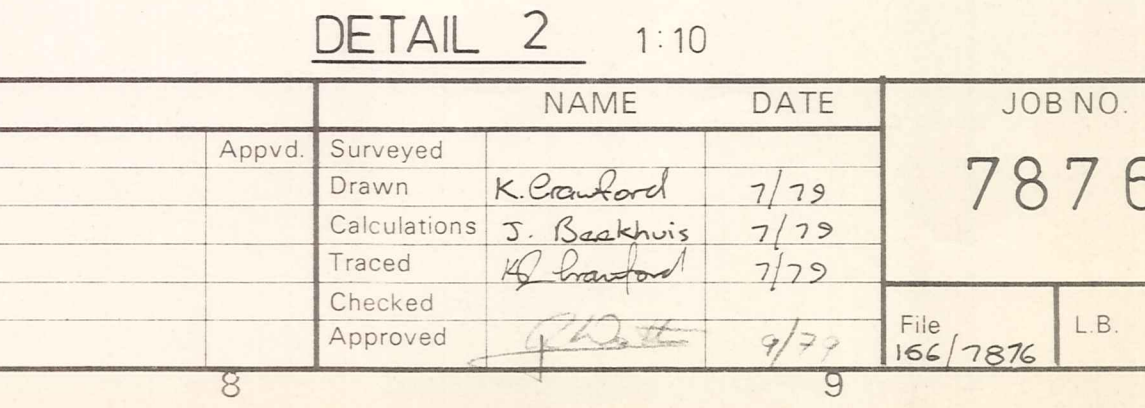 DETAIL 2 1:10
NAME DATE JOB NO.
Appvd. Surveyed
Drawn K. Crawford 7/79
7876
Calculations J. Beekhuis 7/79
Traced Crawford 7/79
Checked
Approved 9/79
File L.B.
166/7876
8 9